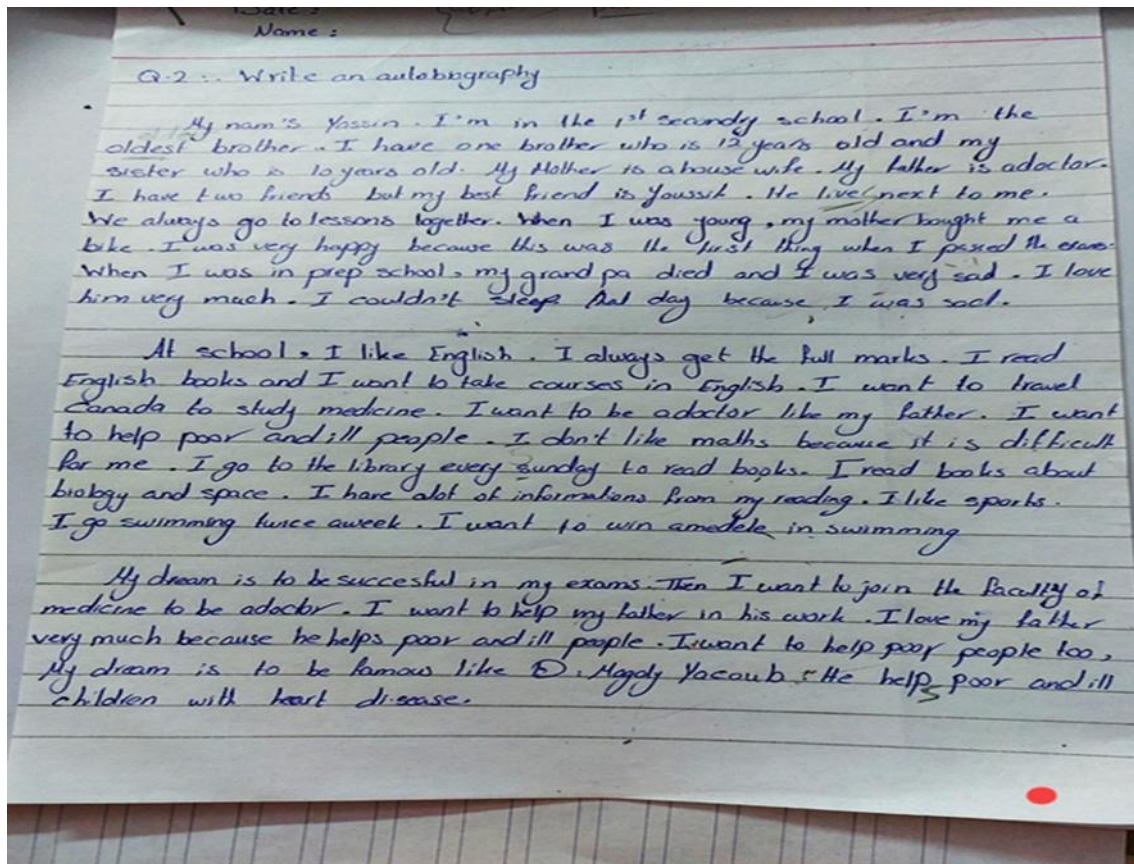 Date :
Name :
Q.2 :. Write an autobiography
My nam's Yossin. I'm in the 1st secondy school. I'm the
oldest brother. I have one brother who is 12 years old and my
sister who is 10 years old. My Mother is a house wife. My father is adoctor.
I have two friends but my best friend is Youssif. He live next to me.
We always go to lessons together. When I was young, my mother bought me a
bike. I was very happy because this was the first thing when I passed the exams.
When I was in prep school, my grand pa died and I was very sad. I love
him very much. I couldn't sleep that day because, I was sad.
At school, I like English. I always get the full marks. I read
English books and I want to take courses in English. I want to travel
Canada to study medicine. I want to be adoctor like my father. I want
to help poor and ill people. I don't like maths because it is difficult
for me. I go to the library every sunday to read books. I read books about
biology and space. I have alot of informations from my reading. I like sports.
I go swimming twice aweek. I want to win amedele in swimming
My dream is to be succesful in my exams. Then I want to join the faculty of
medicine to be adoctor. I want to help my father in his work. I love my father
very much because he helps poor and ill people. I want to help poor people too,
My dream is to be famous like D. Magdy Yacoub. He helps poor and ill
children with heart disease.